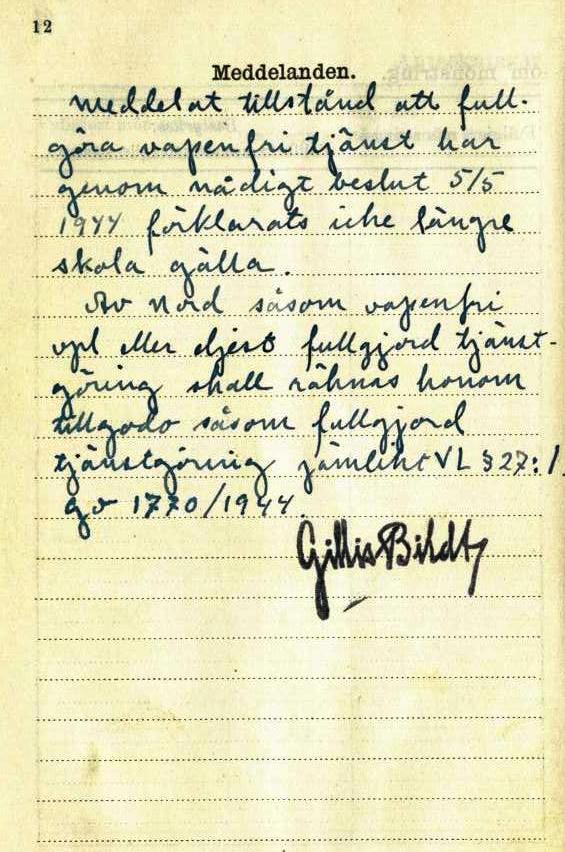 12
Meddelanden.
Meddelat tillstånd att full-
göra vapenfri tjänst har
genom nådigt beslut 5/5
1944 förklarats icke längre
skola gälla.
Av Nord såsom vapenfri
vpl eller eljest fullgjord tjänst-
göring skall räknas honom
tillgodo såsom fullgjord
tjänstgöring jämlikt VL § 27:1.
go 1770/1944.
Gillis Bildt